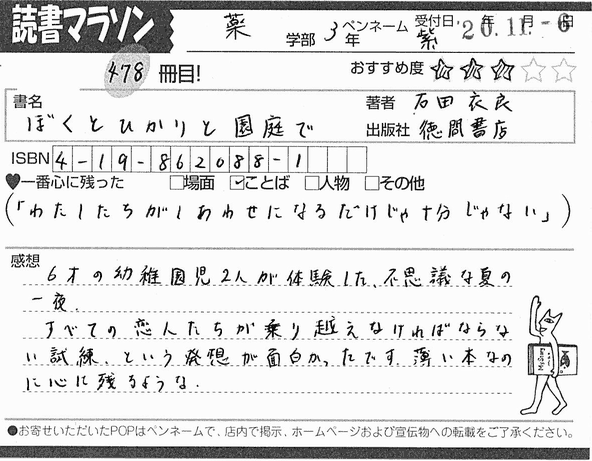 読書マラソン 薬 学部 3年 ペンネーム 紫 受付日 '20年11月-6日
478 冊目! おすすめ度 ★★★☆☆
書名 著者 石田衣良
ぼくとひかりと園庭で 出版社 徳間書店
ISBN 4-19-862088-1
♥一番心に残った □場面 ☑ことば □人物 □その他
(「わたしたちがしあわせになるだけじゃ十分じゃない」)
感想
6才の幼稚園児2人が体験した、不思議な夏の
一夜.
すべての恋人たちが乗り越えなければならな
い試練、という発想が面白かったです. 薄い本なの
に心に残るような.
●お寄せいただいたPOPはペンネームで、店内で掲示、ホームページおよび宣伝物への転載をご了承ください。